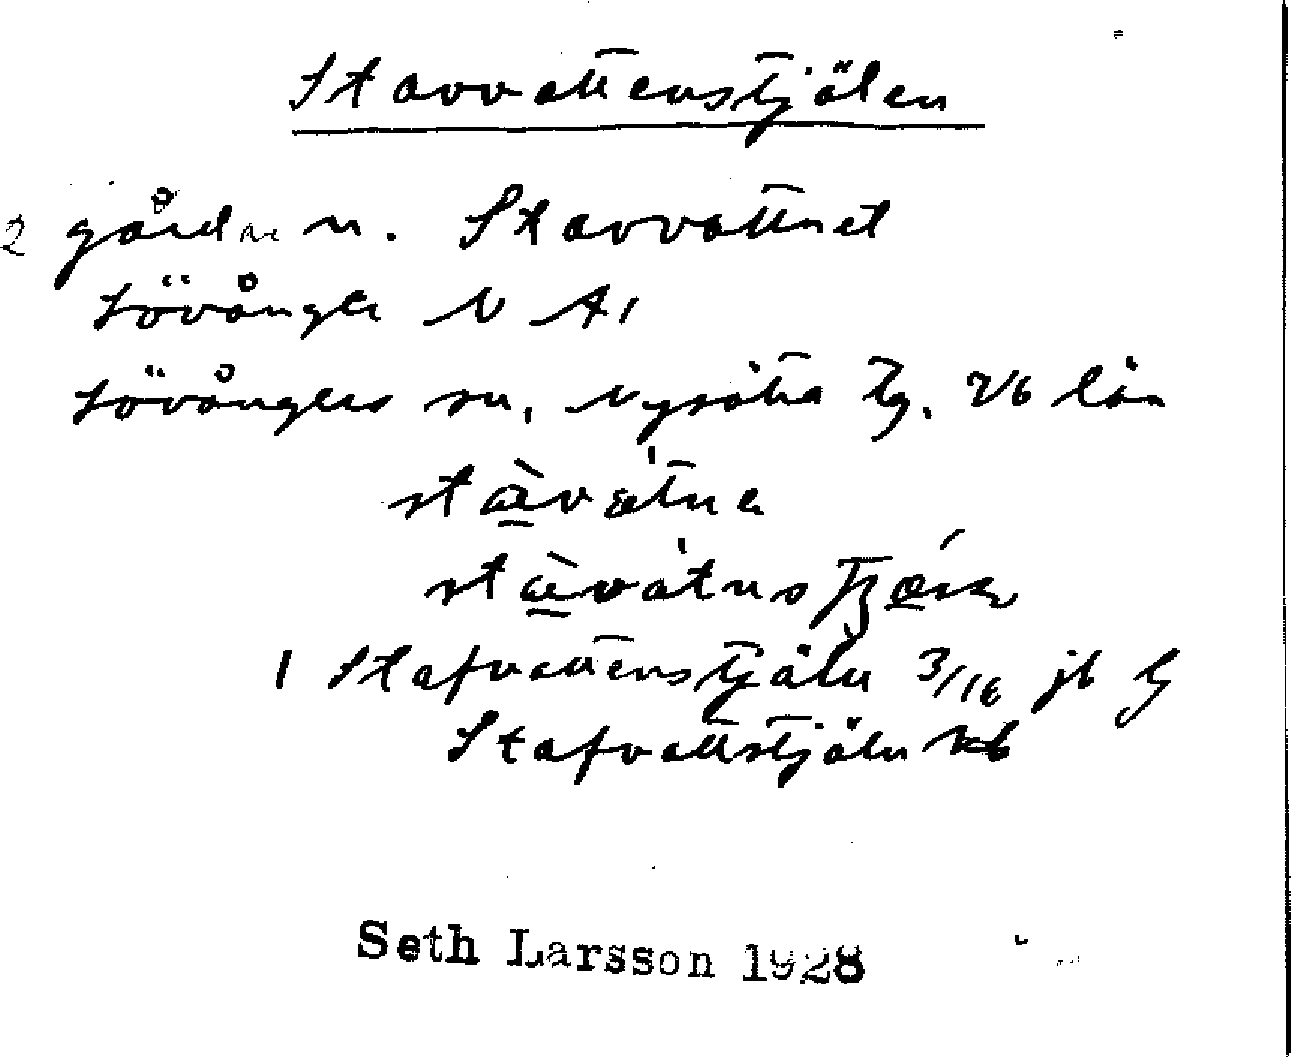 Stavvattenstjälen
2 gårdar n. Stavvattnet
Lövånger N A1
Lövångers sn, Nysätra tg. Vb län
stàvatne
stàvatns
1 Stafvattenstjäln 3/16 jb
Stafvattstjäln kb
Seth Larsson 1928